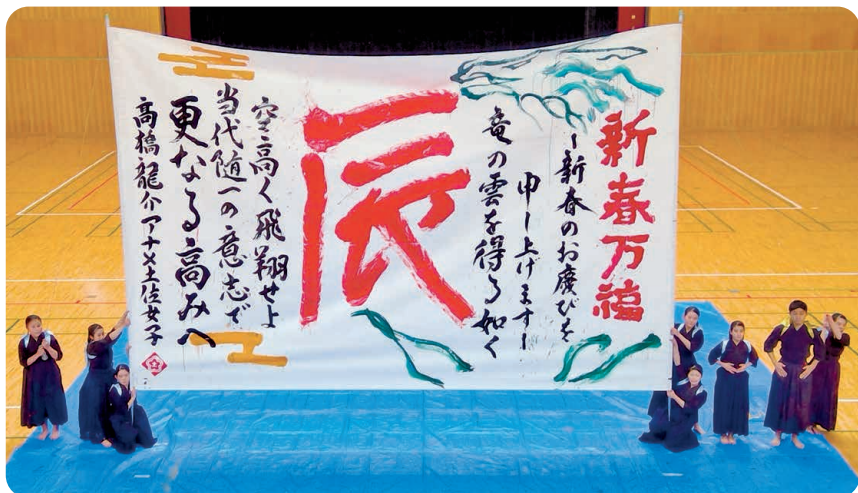 新春万福
～新春のお慶びを
申し上げます～
竜の雲を得る如く
辰
空高く飛翔せよ
当代随一の意志で
更なる高みへ
高橋龍介アナ×土佐女子